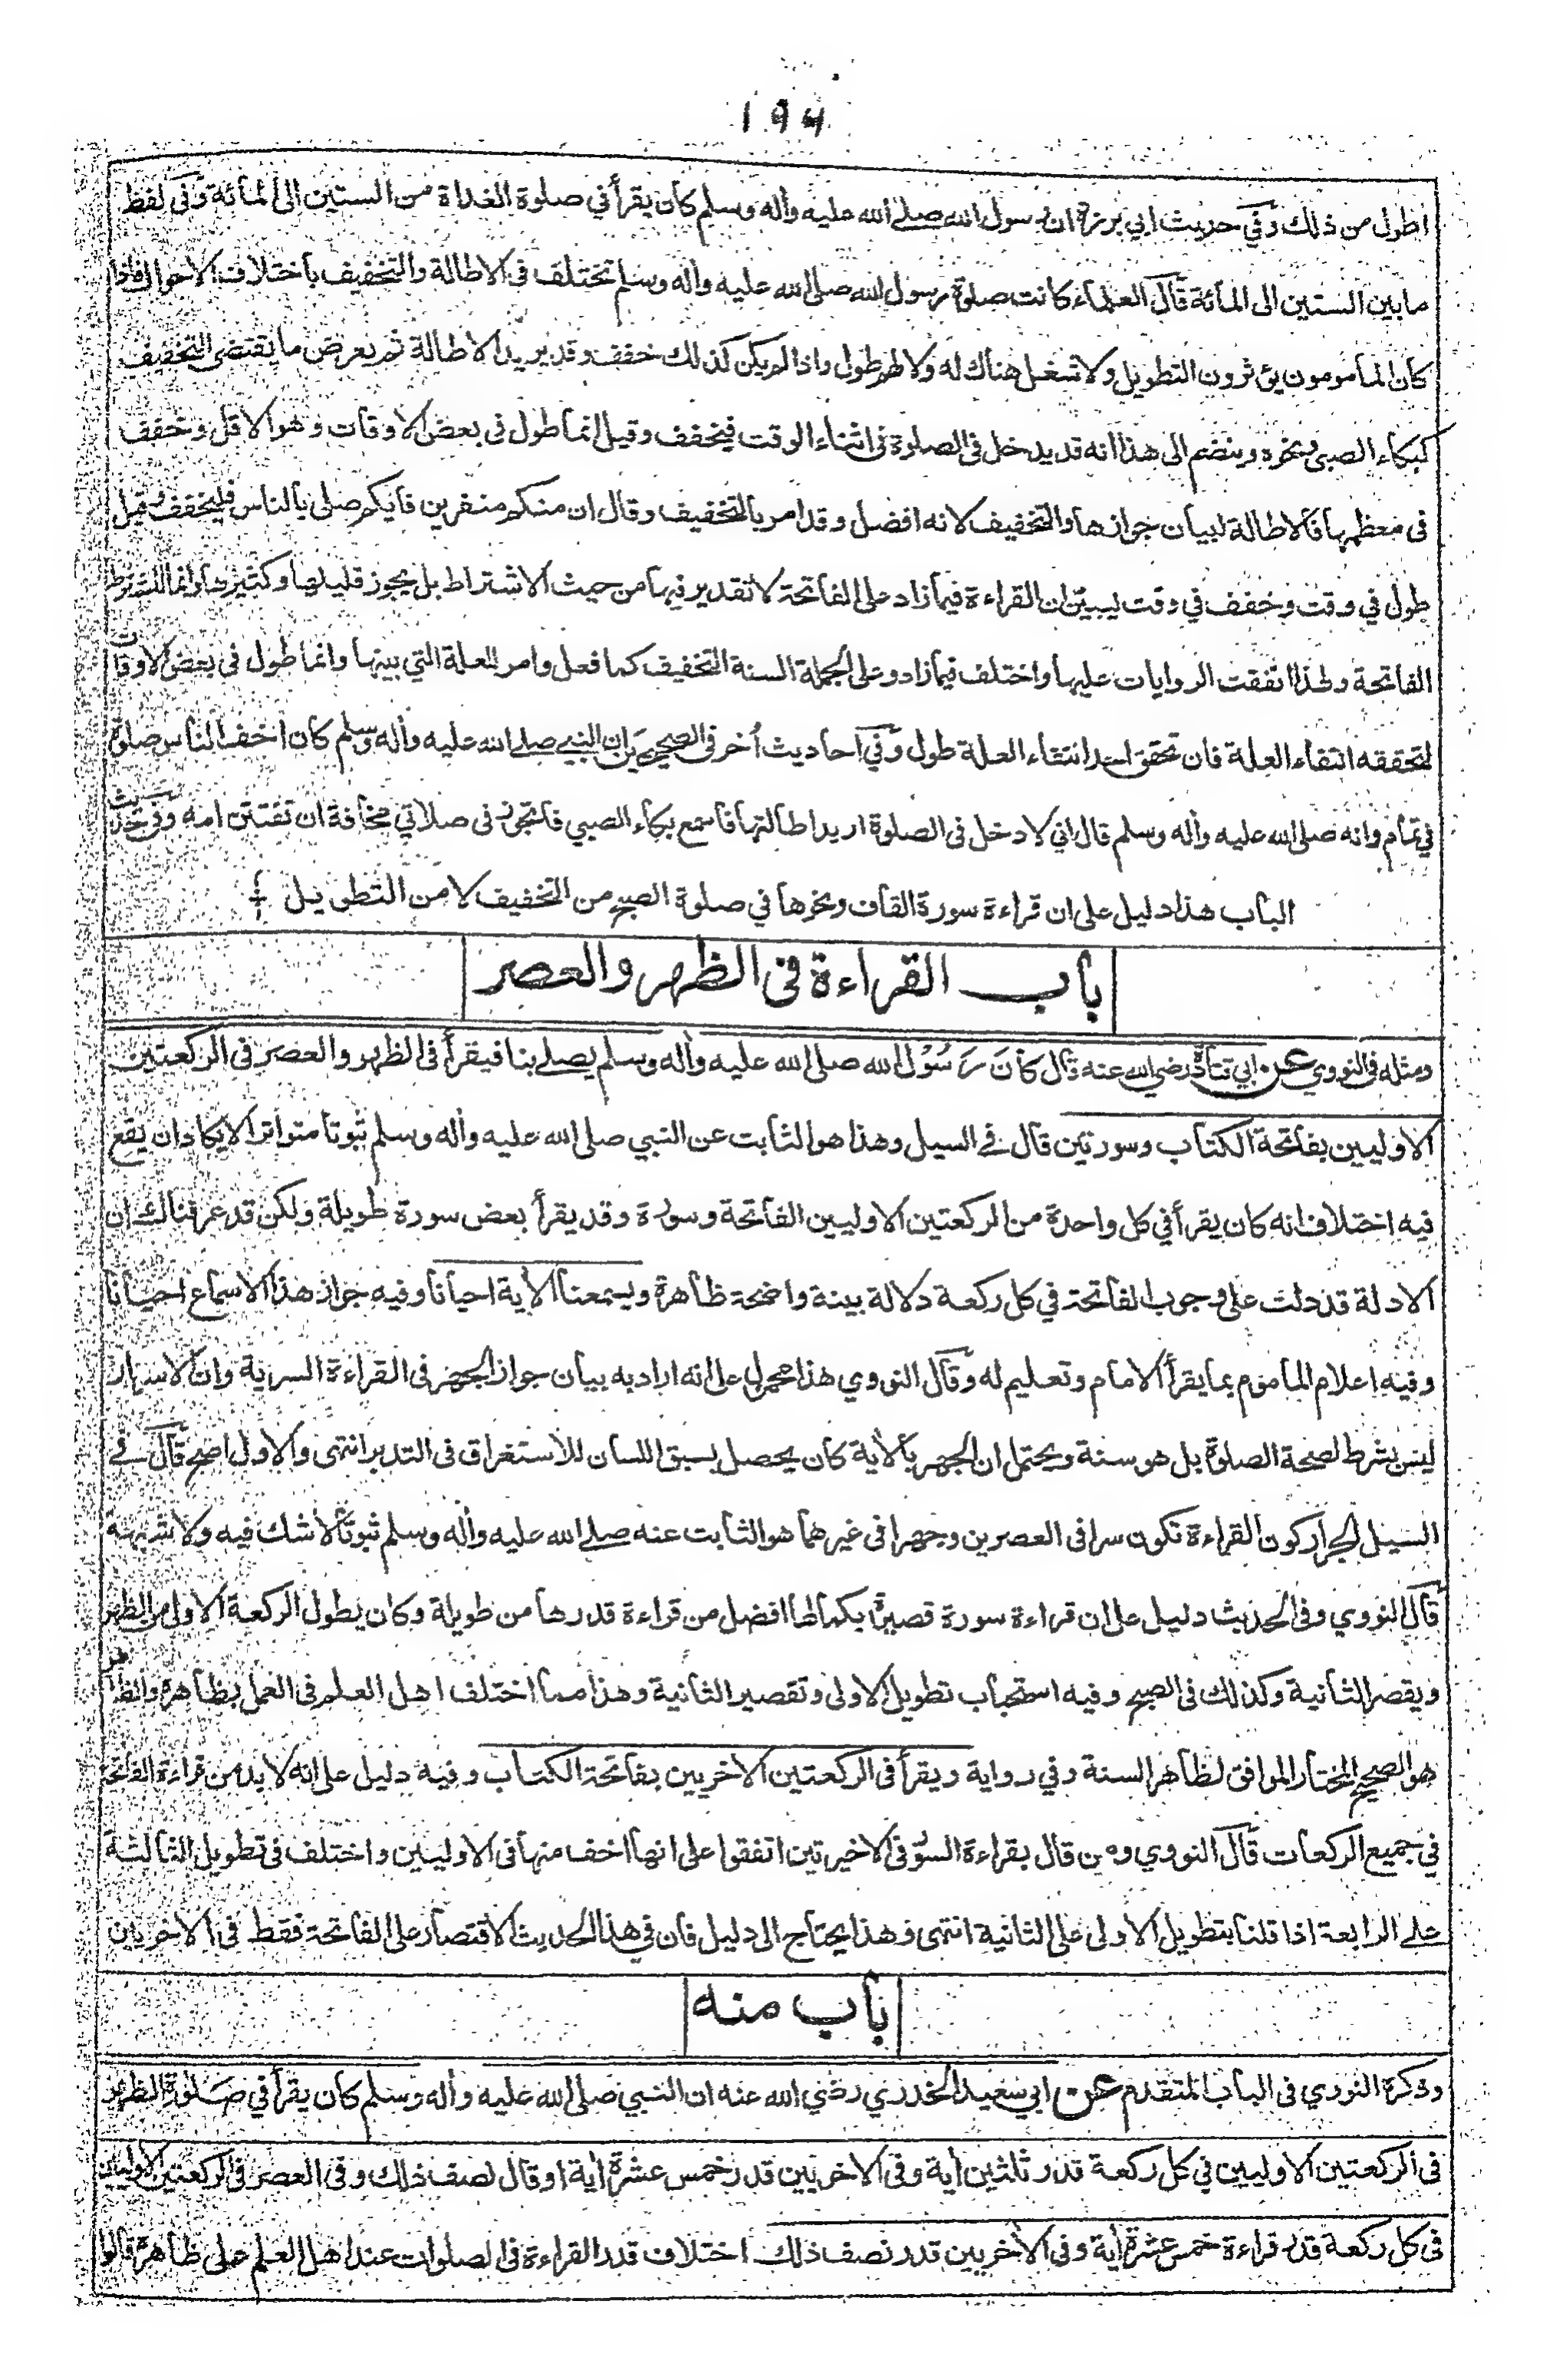 ۱۹۴
اطول من ذلك وفي حديث ابي برزة ان رسول الله صلے الله عليه وأله وسلم كان يقرأ في صلوة الغداة من الستين الى المائة وفى لفظ
ما بين الستين الى المائة قال العلماء كانت صلوة رسول الله صلى الله عليه وأله وسلم تختلف فى الاطالة والتخفيف باختلاف الاحوال فاذا
كان المأمومون يؤثرون التطويل ولا شغل هناك له ولا لهم طول واذا لم يكن كذلك خفف وقد يريد الاطالة ثم يعرض ما يقتضى التخفيف
كبكاء الصبى ونحوه وينضم الى هذا انه قد يدخل فى الصلوة فى اثناء الوقت فيخفف وقيل انما طول فى بعض الاوقات وهو الاقل وخفف
فى معظمها فالاطالة لبيان جوازها والتخفيف لانه افضل وقد امر بالتخفيف وقال ان منكم منفرين فايكم صلى بالناس فليخفف وقيل
طول في وقت وخفف في وقت ليبين ان القراءة فيما زاد على الفاتحة لا تقدير فيها من حيث الاشتراط بل يجوز قليلها وكثيرها وانما المشترط
الفاتحة ولهذا اتفقت الروايات عليها واختلف فيما زاد وعلى الجملة السنة التخفيف كما فعل وامر للعلة التي بينها وانما طول فى بعض الاوقات
لتحققه انتفاء العلة فان تحقق احد انتفاء العلة طول وفي احاديث أخر فى الصحيحين ان النبي صلے الله عليه وأله وسلم كان اخف الناس صلوة
في تمام وانه صلى الله عليه وأله وسلم قال اني لادخل فى الصلوة اريد اطالتها فاسمع بكاء الصبي فاتجوز فى صلاتي مخافة ان تفتتن امه وفى حديث
الباب هذا دليل على ان قراءة سورة القاف ونحوها في صلوة الصبح من التخفيف لا من التطويل
باب القراءة فى الظهر والعصر
ومثله فى النووي عن ابي قتادة رضي الله عنه قال كَانَ رَسُوْل الله صلى الله عليه وأله وسلم يصلے بنا فيقرأ فى الظهر والعصر فى الركعتين
الاوليين بفاتحة الكتاب وسورتين قال فے السيل وهذا هو الثابت عن النبي صلى الله عليه وأله وسلم ثبوتا متواترا لا يكاد ان يقع
فيه اختلاف انه كان يقرأ في كل واحدة من الركعتين الاوليين الفاتحة وسورة وقد يقرأ بعض سورة طويلة ولكن قد عرفناك ان
الادلة قد دلت على وجوب الفاتحة في كل ركعة دلالة بينة واضحة ظاهرة ويسمعنا الأية احيانا وفيه جواز هذا الاسماع احيانا
وفيه اعلام المأموم بما يقرأ الامام وتعليم له وقال النووي هذا محمول على انه اراد به بيان جواز الجهر فى القراءة السرية وان الاسرار
ليس بشرط لصحة الصلوة بل هو سنة ويحتمل ان الجهر بالأية كان يحصل بسبق اللسان للاستغراق فى التدبر انتهى والاول اصح قال فے
السيل الجرار كون القراءة تكون سرا فى العصرين وجهرا فى غيرهما هو الثابت عنه صلے الله عليه وأله وسلم ثبوتا لا شك فيه ولا شبهة
قال النووي وفى الحديث دليل على ان قراءة سورة قصيرة بكمالها افضل من قراءة قدرها من طويلة وكان يطول الركعة الاولى من الظهر
ويقصر الثانية وكذلك فى الصبح وفيه استحباب تطويل الاولى وتقصير الثانية وهذا مما اختلف اهل العلم فى العمل بظاهره والظاهر
هو الصحيح المختار الموافق لظاهر السنة وفي رواية ويقرأ فى الركعتين الاخريين بفاتحة الكتاب وفيه دليل على انه لا بد من قراءة الفاتحة
في جميع الركعات قال النووي ومن قال بقراءة السورة فى الاخيرتين اتفقوا على انها اخف منها فى الاوليين واختلف فى تطويل الثالثة
علے الرابعة اذا قلنا بتطويل الاولى على الثانية انتهى وهذا يحتاج الى دليل فان في هذا الحديث الاقتصار على الفاتحة فقط فى الاخريين
باب منه
وذكره النووي فى الباب المتقدم عن ابي سعيد الخدري رضي الله عنه ان النبي صلى الله عليه وأله وسلم كان يقرأ في صَلوة الظهر
فى الركعتين الاوليين في كل ركعة قدر ثلثين أية وفى الاخريين قدر خمس عشرة أية او قال نصف ذلك وفى العصر فى الركعتين الاوليين
فى كل ركعة قدر قراءة خمس عشرة أية وفى الاخريين قدر نصف ذلك اختلاف قدر القراءة فى الصلوات عند اهل العلم على ظاهره قالوا